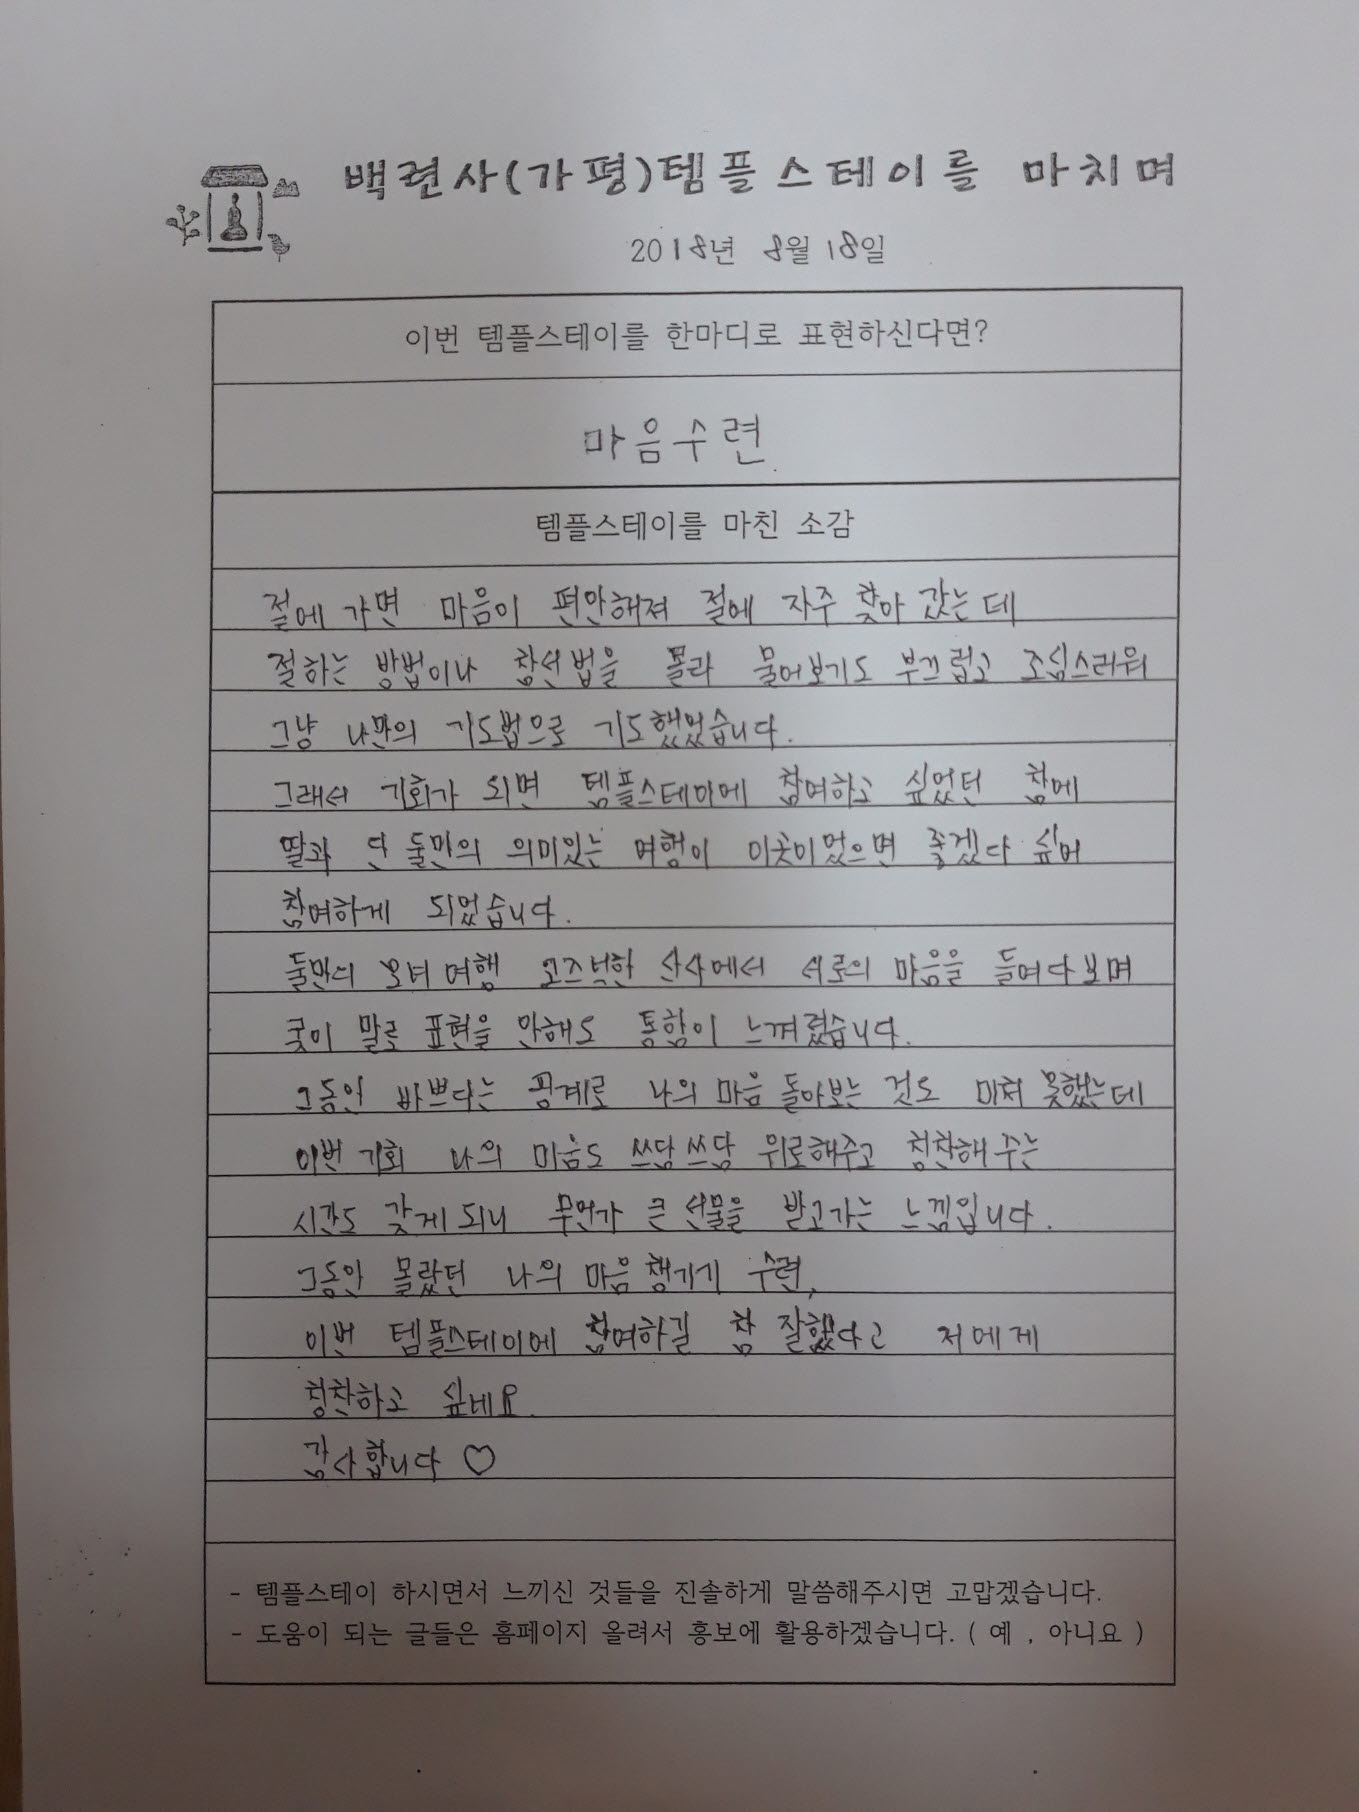 백련사(가평)템플스테이를 마치며
2018년 8월 18일
이번 템플스테이를 한마디로 표현하신다면?
마음수련
템플스테이를 마친 소감
절에 가면 마음이 편안해져 절에 자주 찾아 갔는데
절하는 방법이나 참선법을 몰라 물어보기도 부끄럽고 조심스러워
그냥 나만의 기도법으로 기도했었습니다.
그래서 기회가 되면 템플스테이에 참여하고 싶었던 참에
딸과 단 둘만의 의미있는 여행이 이곳이었으면 좋겠다 싶어
참여하게 되었습니다.
둘만의 모녀 여행 고즈넉한 산사에서 서로의 마음을 들여다보며
굳이 말로 표현을 안해도 통함이 느껴졌습니다.
그동안 바쁘다는 핑계로 나의 마음 돌아보는 것도 미처 못했는데
이번 기회 나의 마음도 쓰담쓰담 위로해주고 칭찬해 주는
시간도 갖게 되니 무언가 큰 선물을 받고가는 느낌입니다.
그동안 몰랐던 나의 마음 챙기기 수련,
이번 템플스테이에 참여하길 참 잘했다고 저에게
칭찬하고 싶네요.
감사합니다 ♡
- 템플스테이 하시면서 느끼신 것들을 진솔하게 말씀해주시면 고맙겠습니다.
- 도움이 되는 글들은 홈페이지 올려서 홍보에 활용하겠습니다. ( 예 , 아니요 )